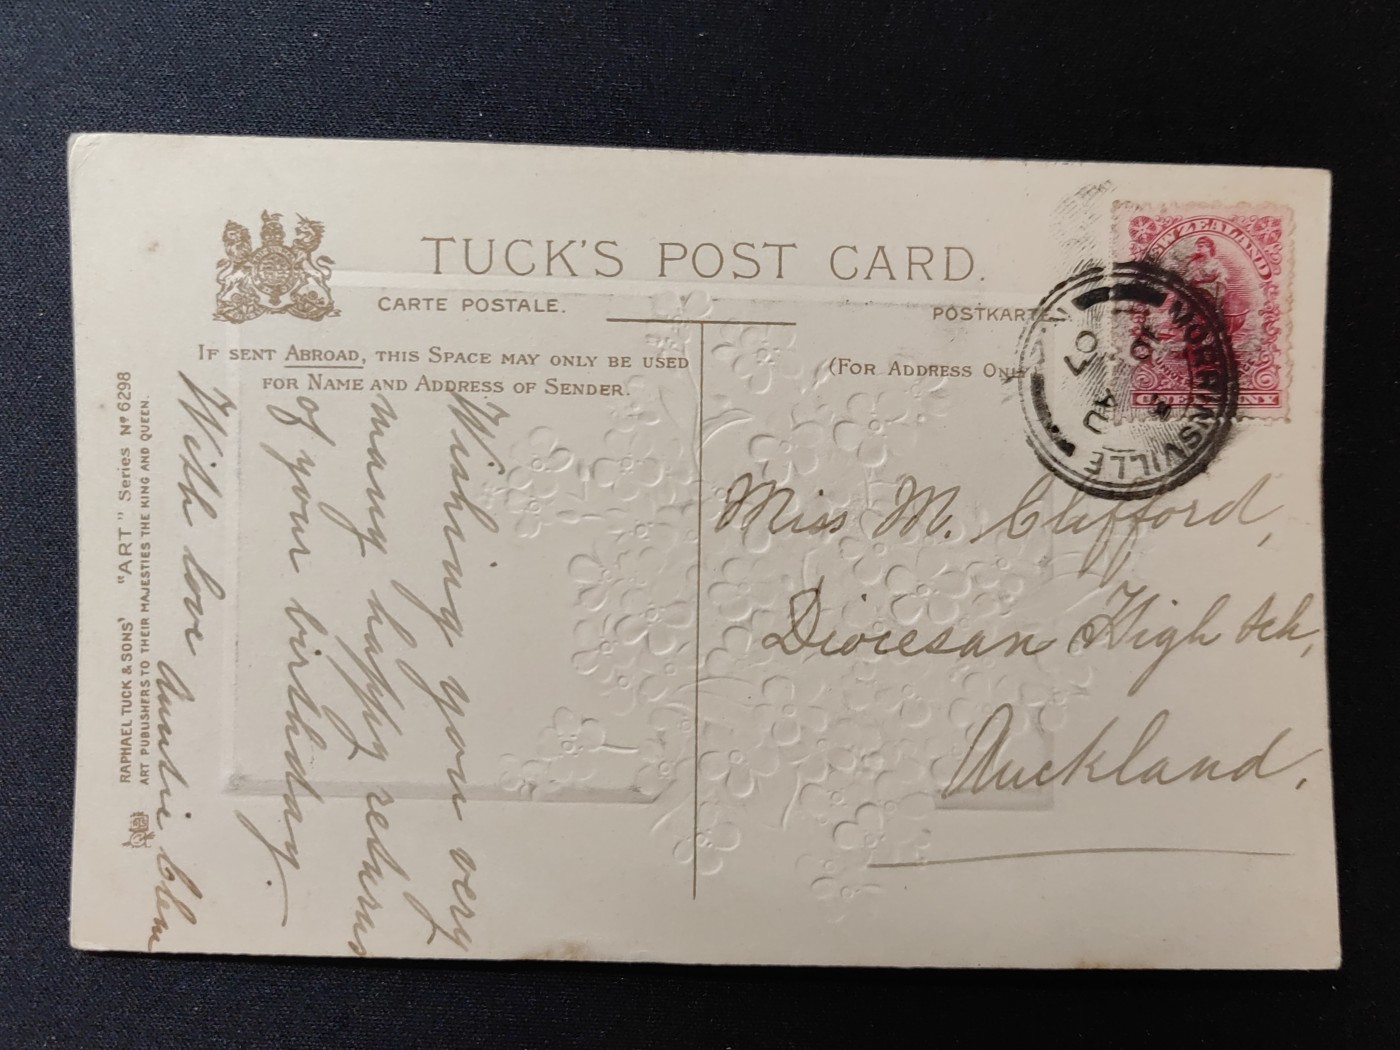 TUCK'S POST CARD.
CARTE POSTALE.
POSTKARTE.
IF SENT ABROAD, THIS SPACE MAY ONLY BE USED
FOR NAME AND ADDRESS OF SENDER.
(FOR ADDRESS ONLY
NEW ZEALAND
ONE PENNY
MORRINSVILLE
10
AU
07
Miss M. Clifford,
Diocesan High Sch,
Auckland.
Wishing you very
many happy returns
of your birthday.
With love Auntie Clem
RAPHAEL TUCK & SONS' "ART" Series No 6298
ART PUBLISHERS TO THEIR MAJESTIES THE KING AND QUEEN.